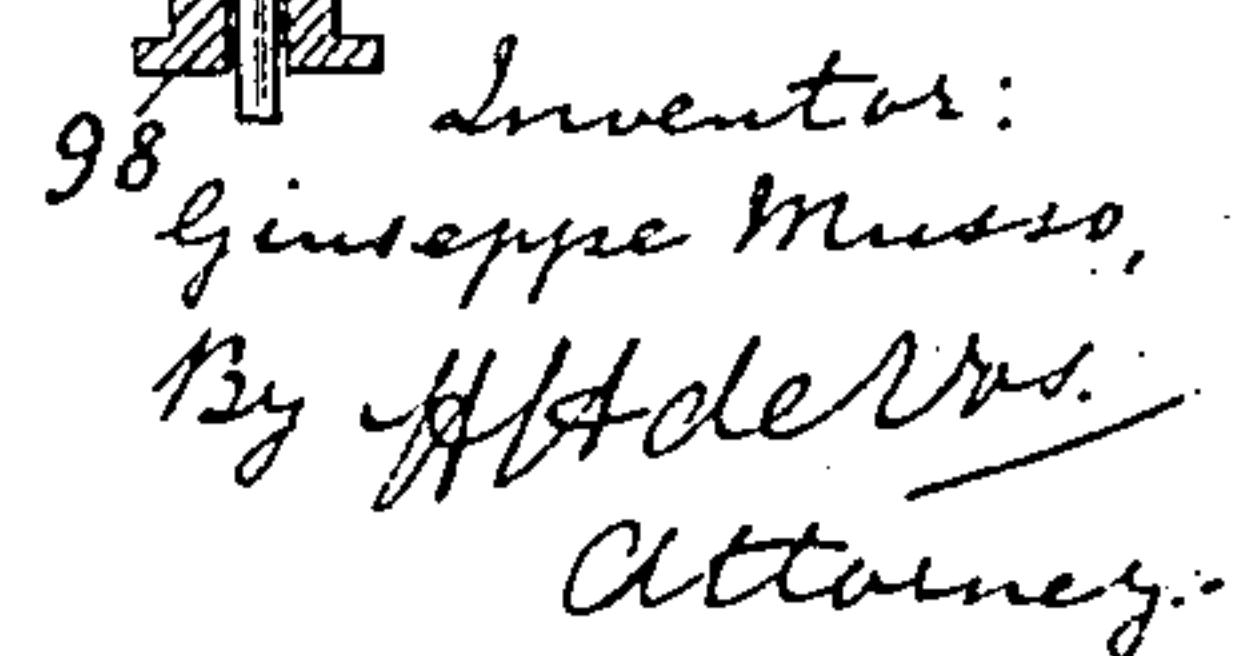 98
Inventor:
Giuseppe Musso,
By H H de Vos.
Attorney.